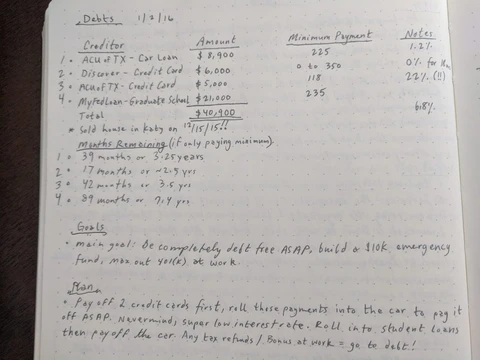 Debts 1/2/16
Creditor Amount Minimum Payment Notes
1 • ACU of TX - Car Loan $8,900 225 1.2%
2 • Discover - Credit Card $6,000 0 to 350 0% for
3 • ACU of TX - Credit Card $5,000 118 22% (!!)
4 • MyFedLoan - Graduate School $21,000 235 6.8%
Total $40,900
* Sold house in Katy on 12/15/15!!
Months Remaining (if only paying minimum)
1 • 39 months or 3.25 years
2 • 17 months or ~2.5 yrs
3 • 42 months or 3.5 yrs
4 • 89 months or 7.4 yrs
Goals
• main goal: be completely debt free ASAP, build a $10K emergency
fund, max out 401(K) at work.
Plan
• Pay off 2 credit cards first, roll those payments into the car to pay it
off ASAP. Nevermind, super low interest rate. Roll into student loans
then pay off the car. Any tax refunds / Bonus at work = go to debt!